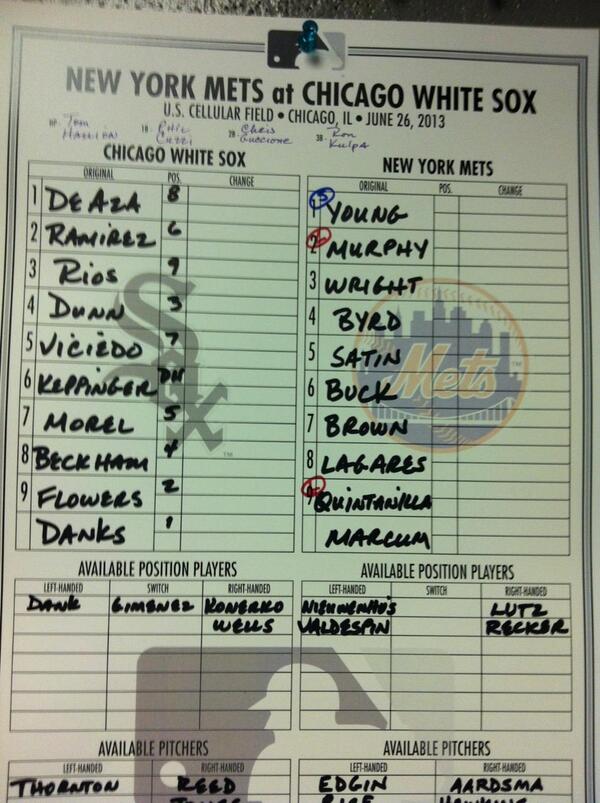 NEW YORK METS at CHICAGO WHITE SOX
U.S. CELLULAR FIELD • CHICAGO, IL • JUNE 26, 2013
HP- Tom Hallion 1B- Phil Cuzzi 2B Chris Guccione 3B- Ron Kulpa
CHICAGO WHITE SOX
ORIGINAL POS. CHANGE
1 DE AZA 8
2 RAMIREZ 6
3 RIOS 9
4 DUNN 3
5 VICIEDO 7
6 KEPPINGER DH
7 MOREL 5
8 BECKHAM 4
9 FLOWERS 2
DANKS 1
Sox
NEW YORK METS
ORIGINAL POS. CHANGE
1 YOUNG
2 MURPHY
3 WRIGHT
4 BYRD
5 SATIN
6 BUCK
7 BROWN
8 LAGARES
9 QUINTANILLA
MARCUM
Mets
AVAILABLE POSITION PLAYERS
LEFT-HANDED SWITCH RIGHT-HANDED
DANK GIMENEZ KONERKO
WELLS
AVAILABLE POSITION PLAYERS
LEFT-HANDED SWITCH RIGHT-HANDED
NIEUWENHUIS LUTZ
VALDESPIN RECKER
AVAILABLE PITCHERS
LEFT-HANDED RIGHT-HANDED
THORNTON REED
AVAILABLE PITCHERS
LEFT-HANDED RIGHT-HANDED
EDGIN AARDSMA
RICE